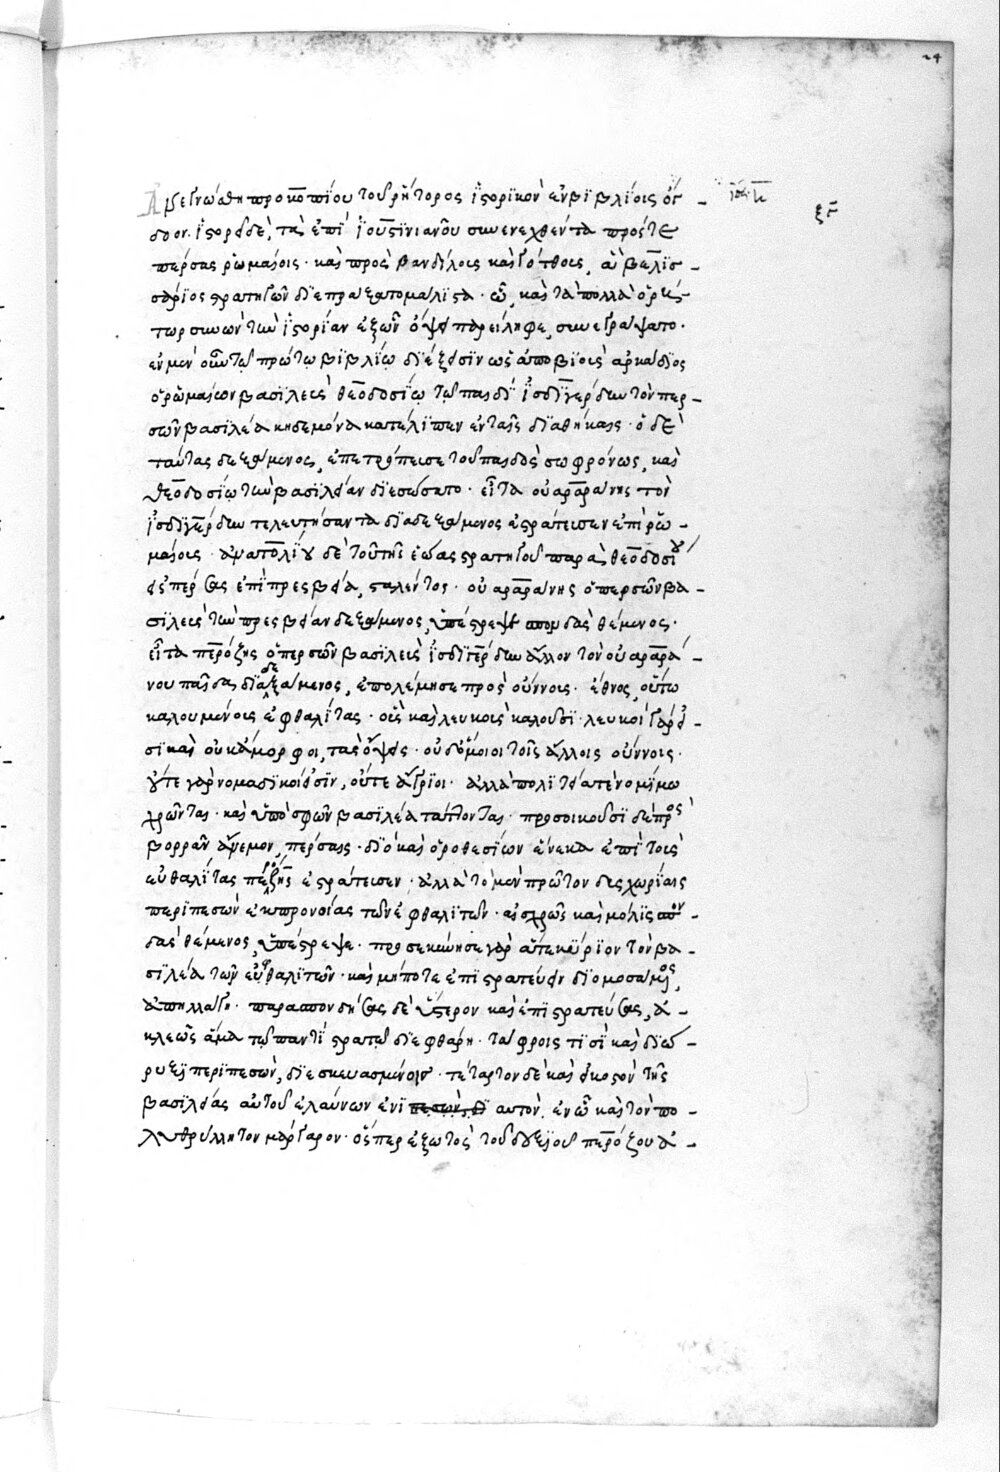 24
Ἀνεγνώσθη προκοπίου τοῦ ῥήτορος ἱστορικὸν ἐν βιβλίοις ὀκ-
ξγ
τώ. ἱστορεῖ δὲ, τὰ ἐπὶ ἰουστινιανοῦ συνενεχθέντα πρός τε
πέρσας ῥωμαίοις· καὶ πρὸς βανδίλους καὶ γότθους, ἃ βελισ-
σάριος στρατηγῶν διεπράξατο μάλιστα· ᾧ, καὶ τὰ πολλὰ ὁ ῥή-
τωρ συνὼν τὴν ἱστορίαν ἐξ ὧν ὄψει παρείληφε, συνεγράψατο·
ἐν μὲν οὖν τῷ πρώτῳ βιβλίῳ διέξεισιν ὡς ἀποβιοὺς ἀρκάδιος
ὁ ῥωμαίων βασιλεὺς θεοδοσίῳ τῷ παιδὶ ἰσδιγέρδην τὸν περ-
σῶν βασιλέα κηδεμόνα κατέλιπεν ἐν ταῖς διαθήκαις· ὁ δὲ
ταύτας δεξάμενος, ἐπετρόπευσε τοῦ παιδὸς σωφρόνως, καὶ
θεοδοσίῳ τὴν βασιλείαν διεσώσατο· εἶτα οὐαραράνης τὸν
ἰσδιγέρδην τελευτήσαντα διαδεξάμενος ἐστράτευσεν ἐπὶ ῥω-
μαίοις· ἀνατολίου δὲ τοῦ τῆς ἕω στρατηγοῦ παρὰ θεοδοσίου
εἰς πέρσας ἐπὶ πρεσβείᾳ, σταλέντος· οὐαραράνης ὁ περσῶν βα-
σιλεὺς τὴν πρεσβείαν δεξάμενος, ὑπέστρεψε σπονδὰς θέμενος·
εἶτα περόζης ὁ περσῶν βασιλεὺς ἰσδιγέρδην ἄλλον τὸν οὐαραρά-
νου παῖδα διαδεξάμενος, ἐπολέμησε πρὸς οὔννους· ἔθνος, οὕτω
καλουμένους ἐφθαλίτας· οὓς καὶ λευκοὺς καλοῦσι· λευκοὶ γάρ εἰ-
σι καὶ οὐκ ἄμορφοι, τὰς ὄψεις· οὐδ' ὅμοιοι τοῖς ἄλλοις οὔννοις·
οὔτε γὰρ νομαδικοί εἰσιν, οὔτε ἄγριοι· ἀλλὰ πολιτείᾳ τε νομίμῳ
χρῶνται· καὶ ὑπὸ σφῶν βασιλέα τάττονται· προσοικοῦσι δὲ πρὸς
βορρᾶν ἄνεμον, πέρσαις· διὸ καὶ ὁροθεσίων ἕνεκα ἐπὶ τοὺς
εὐθαλίτας περόζης ἐστράτευσεν· ἀλλὰ τὸ μὲν πρῶτον δυσχωρίαις
περιπεσὼν ἐκ προνοίας τῶν ἐφθαλιτῶν· αἰσχρῶς καὶ μόλις σπον-
δὰς θέμενος, ὑπέστρεψε· προσεκύνησε γὰρ ἅτε κύριον τὸν βα-
σιλέα τῶν εὐθαλιτῶν· καὶ μήποτε ἐπιστρατεύειν διομοσάμενος,
ἀπηλλάγη· παρασπονδήσας δὲ ὕστερον καὶ ἐπιστρατεύσας, ἀ-
κλεῶς ἅμα τῷ παντὶ στρατῷ διεφθάρη· τάφροις τισὶ καὶ διώ-
ρυξι περιπεσὼν, διεσκευασμέναις· τέταρτον δὲ καὶ εἰκοστὸν τῆς
βασιλείας αὐτοῦ ἐλαύνων ἐνιαυτὸν, ἐν ᾧ καὶ τὸν πο-
λυθρύλλητον μάργαρον· ὅσπερ ἐξ ὠτὸς τοῦ δεξιοῦ περόζου ἀ-